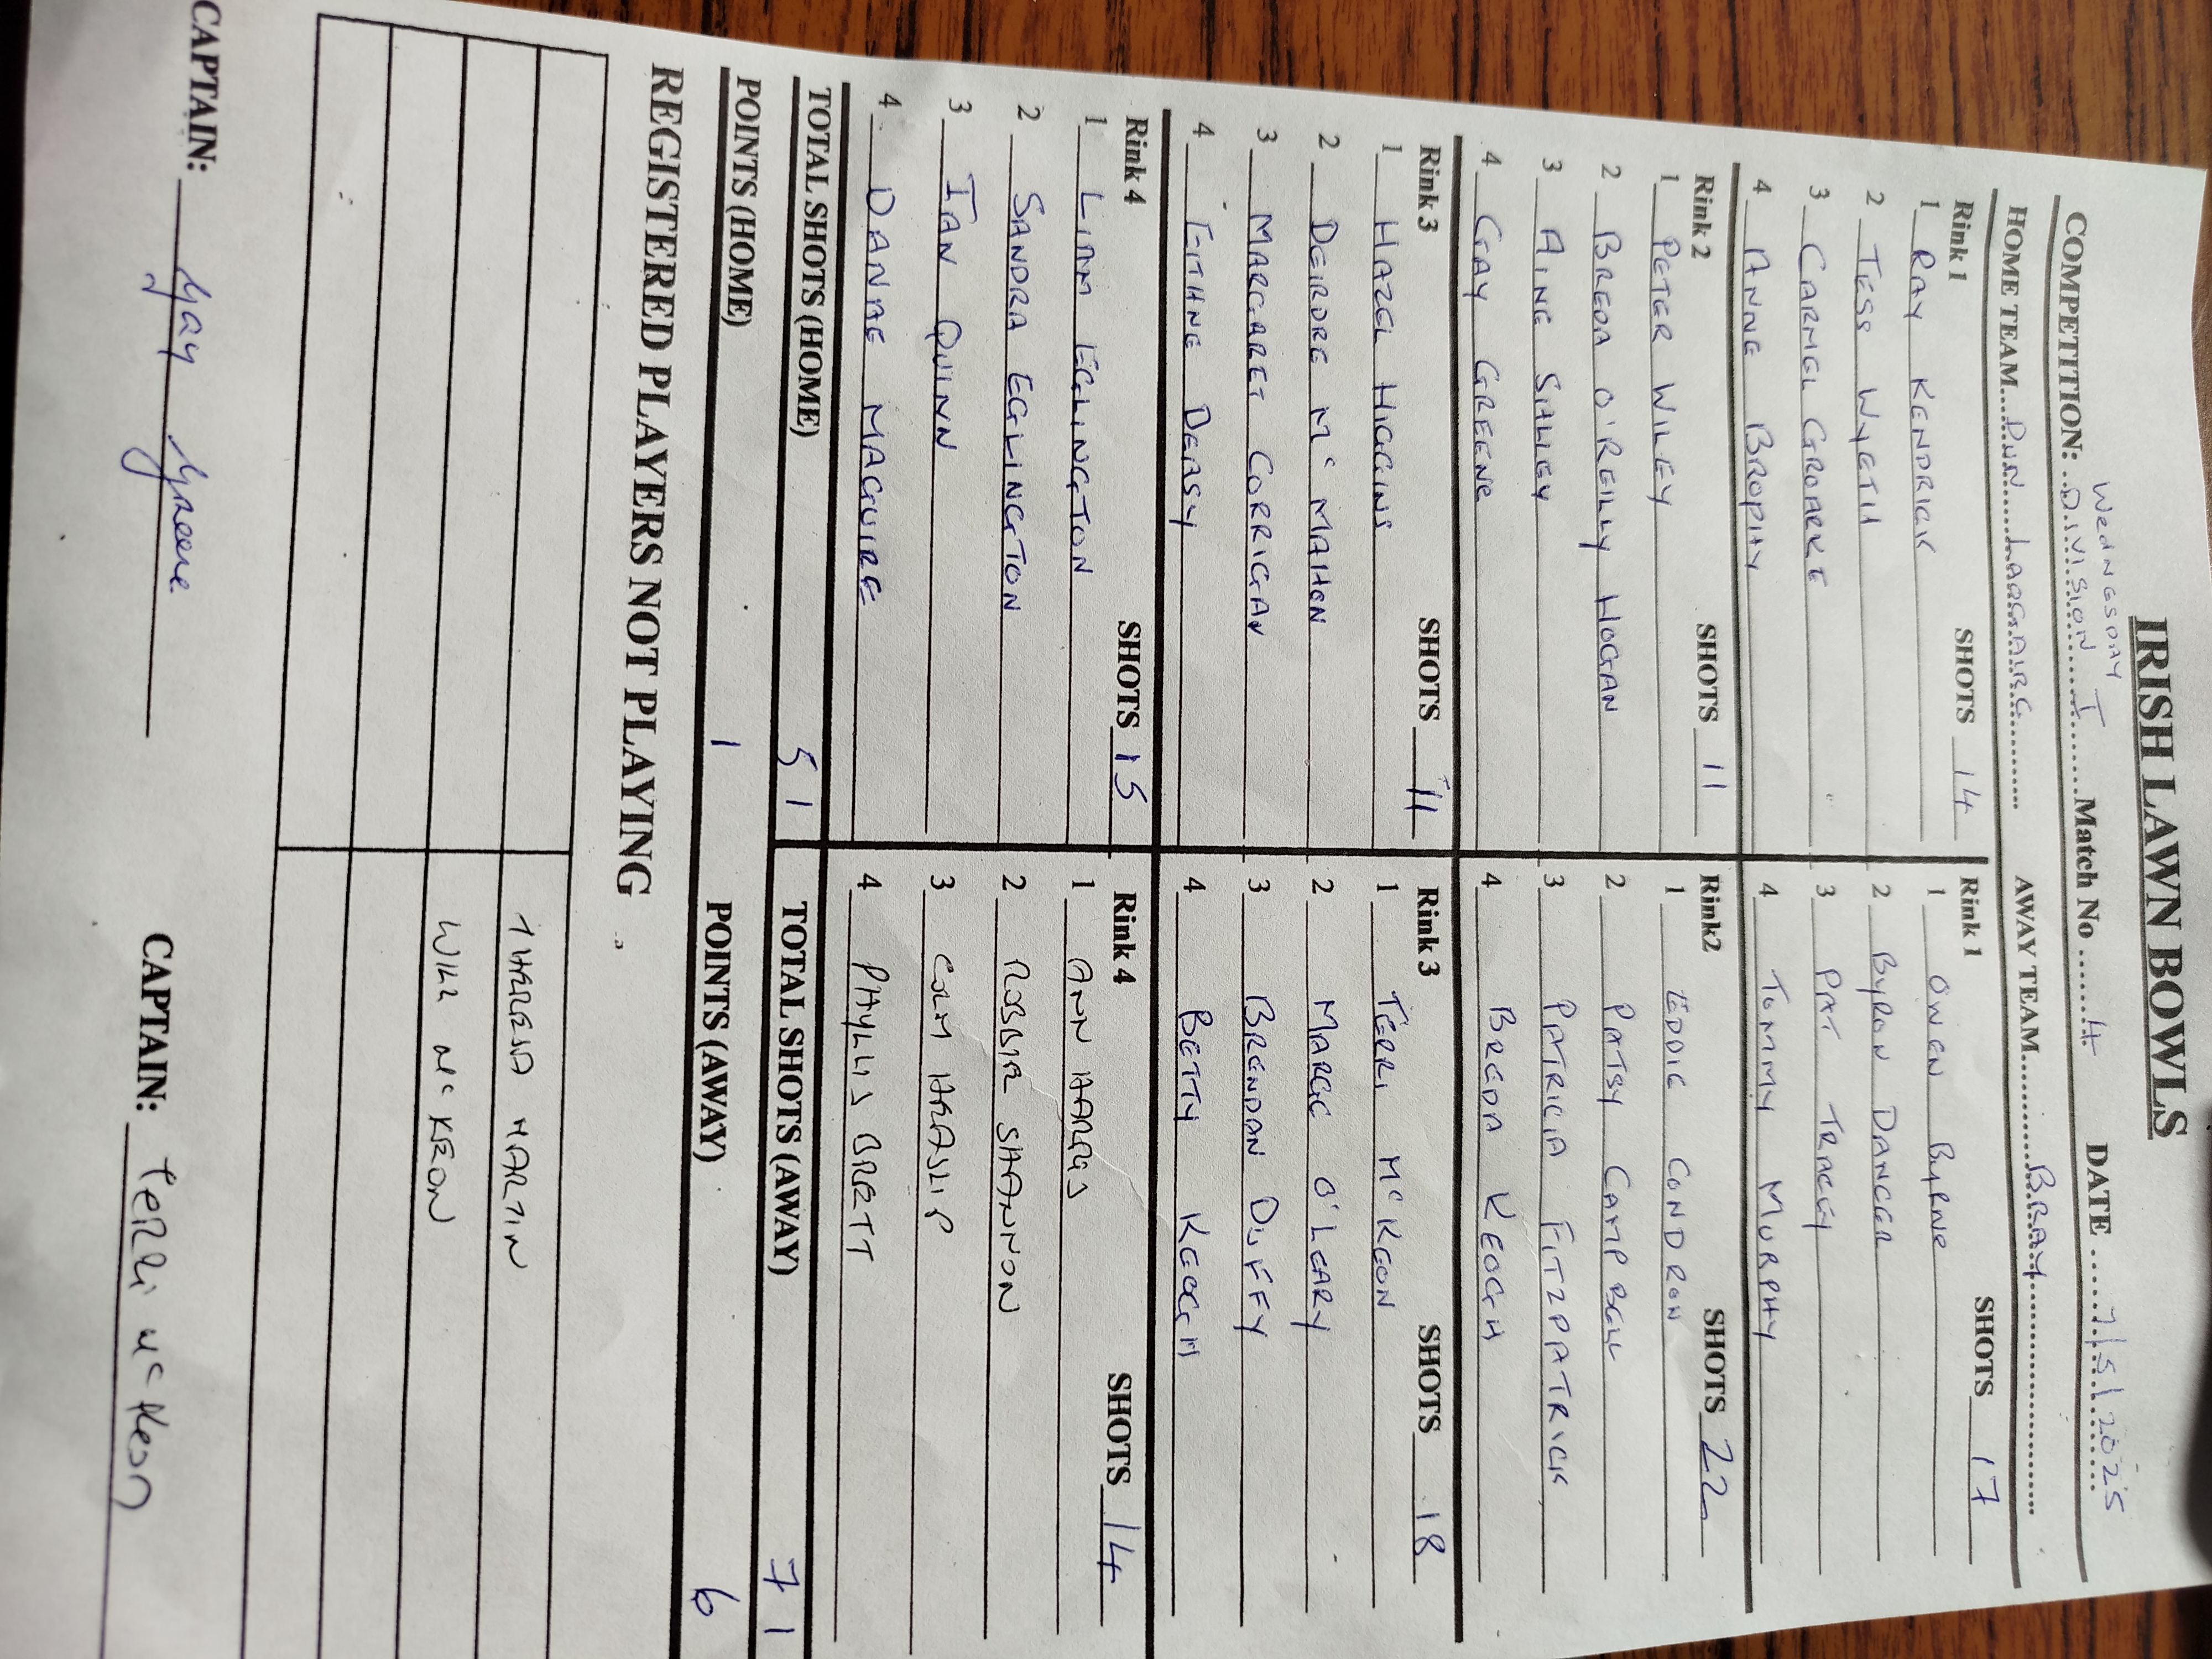 IRISH LAWN BOWLS
WEDNESDAY
COMPETITION: DIVISION I Match No 4 DATE 7/5/2025
HOME TEAM DUN LAOGAIRE AWAY TEAM BRAY
Rink 1 SHOTS 14 Rink 1 SHOTS 17
1 RAY KENDRICK 1 OWEN BYRNE
2 TESS WYETH 2 BYRON DANCER
3 CARMEL GROARKE 3 PAT TRACEY
4 ANNE BROPHY 4 TOMMY MURPHY
Rink 2 SHOTS 11 Rink2 SHOTS 22
1 PETER WILEY 1 EDDIE CONDRON
2 BREDA O'REILLY HOGAN 2 PATSY CAMPBELL
3 AINE 3 PATRICIA FITZPATRICK
4 GAY GREENE 4 BREDA KEOGH
Rink 3 SHOTS 11 Rink 3 SHOTS 18
1 HAZEL HIGGINS 1 TERRI McKEON
2 DEIRDRE McMAHON 2 MARGE O'LEARY
3 MARGARET CORRIGAN 3 BRENDAN DUFFY
4 EITHNE DEASY 4 BETTY KEOGH
Rink 4 SHOTS 15 Rink 4 SHOTS 14
1 LIAM EGLINGTON 1 ANN
2 SANDRA EGLINGTON 2 ROBBIE SHANNON
3 IAN QUINN 3 COLM HEASLIP
4 DANAE MAGUIRE 4 PHYLLIS BRETT
TOTAL SHOTS (HOME) 51 TOTAL SHOTS (AWAY) 71
POINTS (HOME) 1 POINTS (AWAY) 6
REGISTERED PLAYERS NOT PLAYING
THERESA MARTIN
WILL McKEON
CAPTAIN: Gay Greene CAPTAIN: Terri McKeon